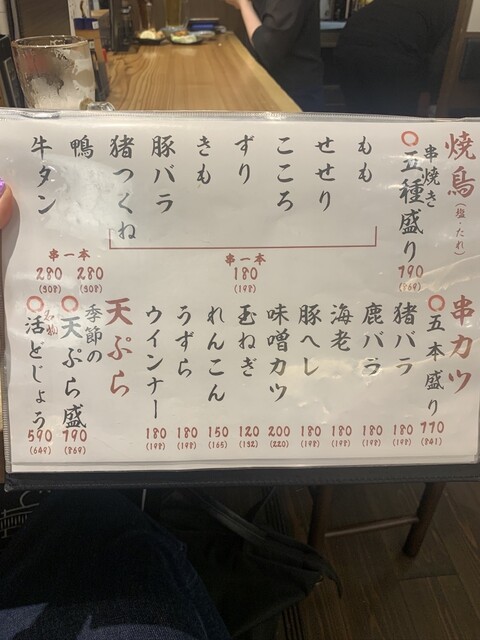 焼鳥(塩・たれ)
○串焼き五種盛り 790 (869)
もも
せせり
こころ
ずり
きも
豚バラ
猪つくね
串一本 180 (198)
鴨
牛タン
串一本
280 (308)
280 (308)
串カツ
○五本盛り 770 (841)
猪バラ 180 (198)
鹿バラ 180 (198)
海老 180 (198)
豚ヘレ 180 (198)
味噌カツ 200 (220)
玉ねぎ 120 (132)
れんこん 150 (165)
うずら 180 (198)
ウインナー 180 (198)
天ぷら
○季節の天ぷら盛 790 (869)
○名物活どじょう 590 (649)